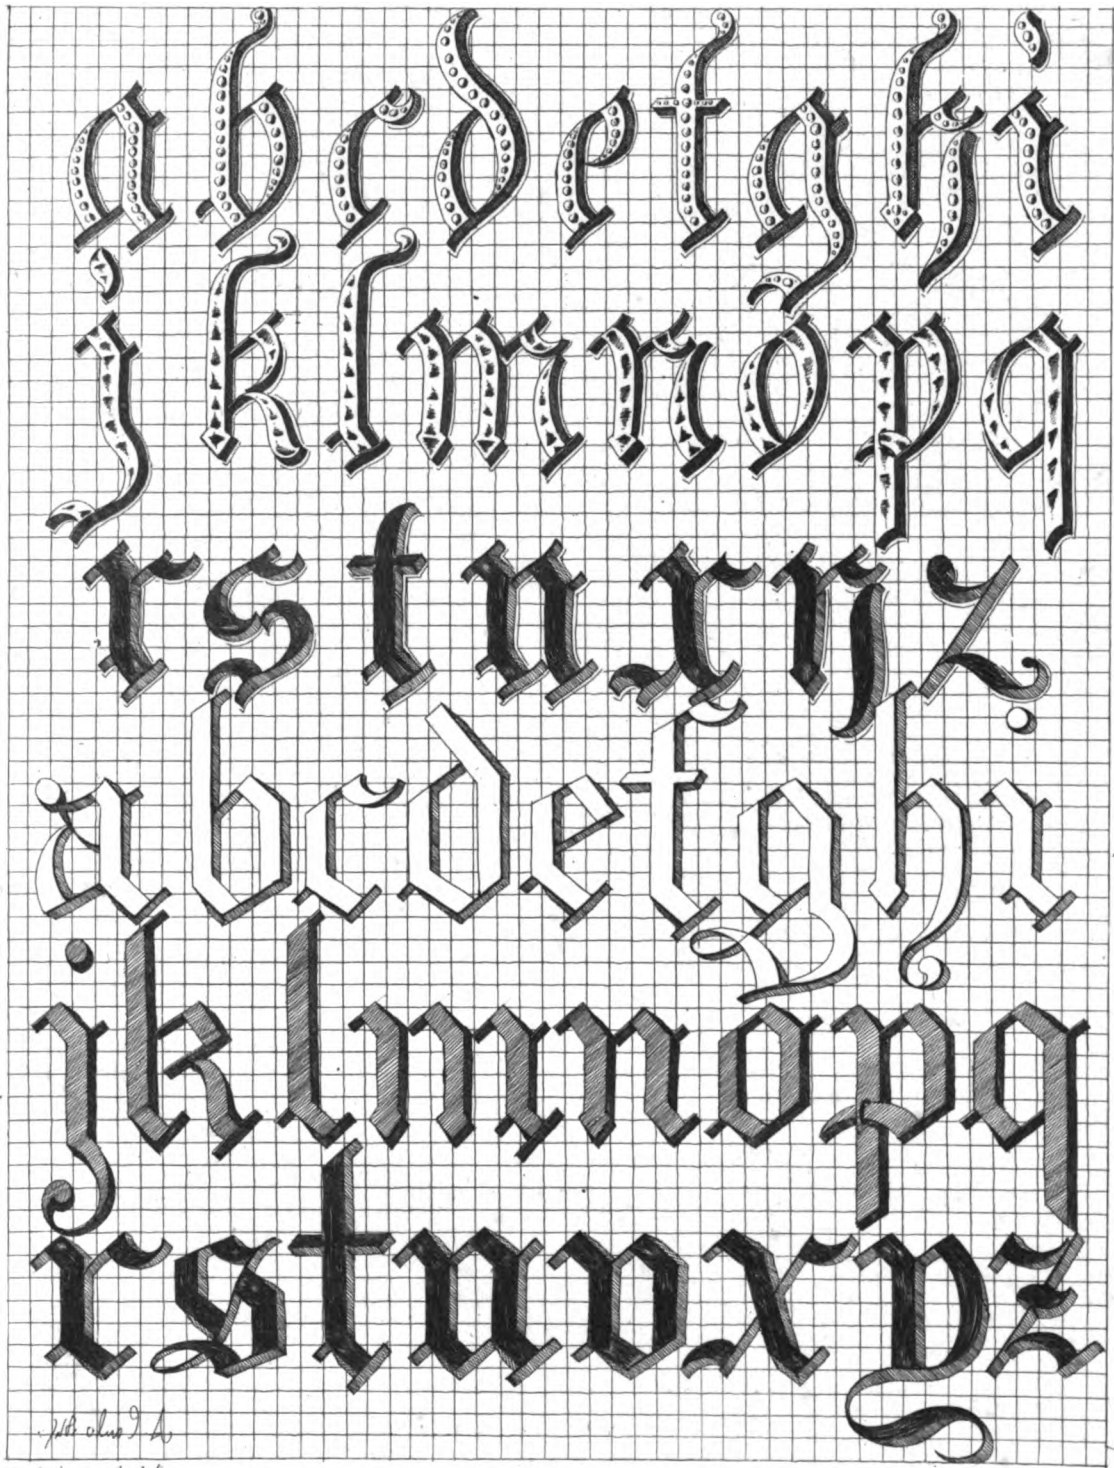 a b c d e f g h i
j k l m n o p q
r s t u x y z
a b c d e f g h i
j k l m n o p q
r s t u v x y z